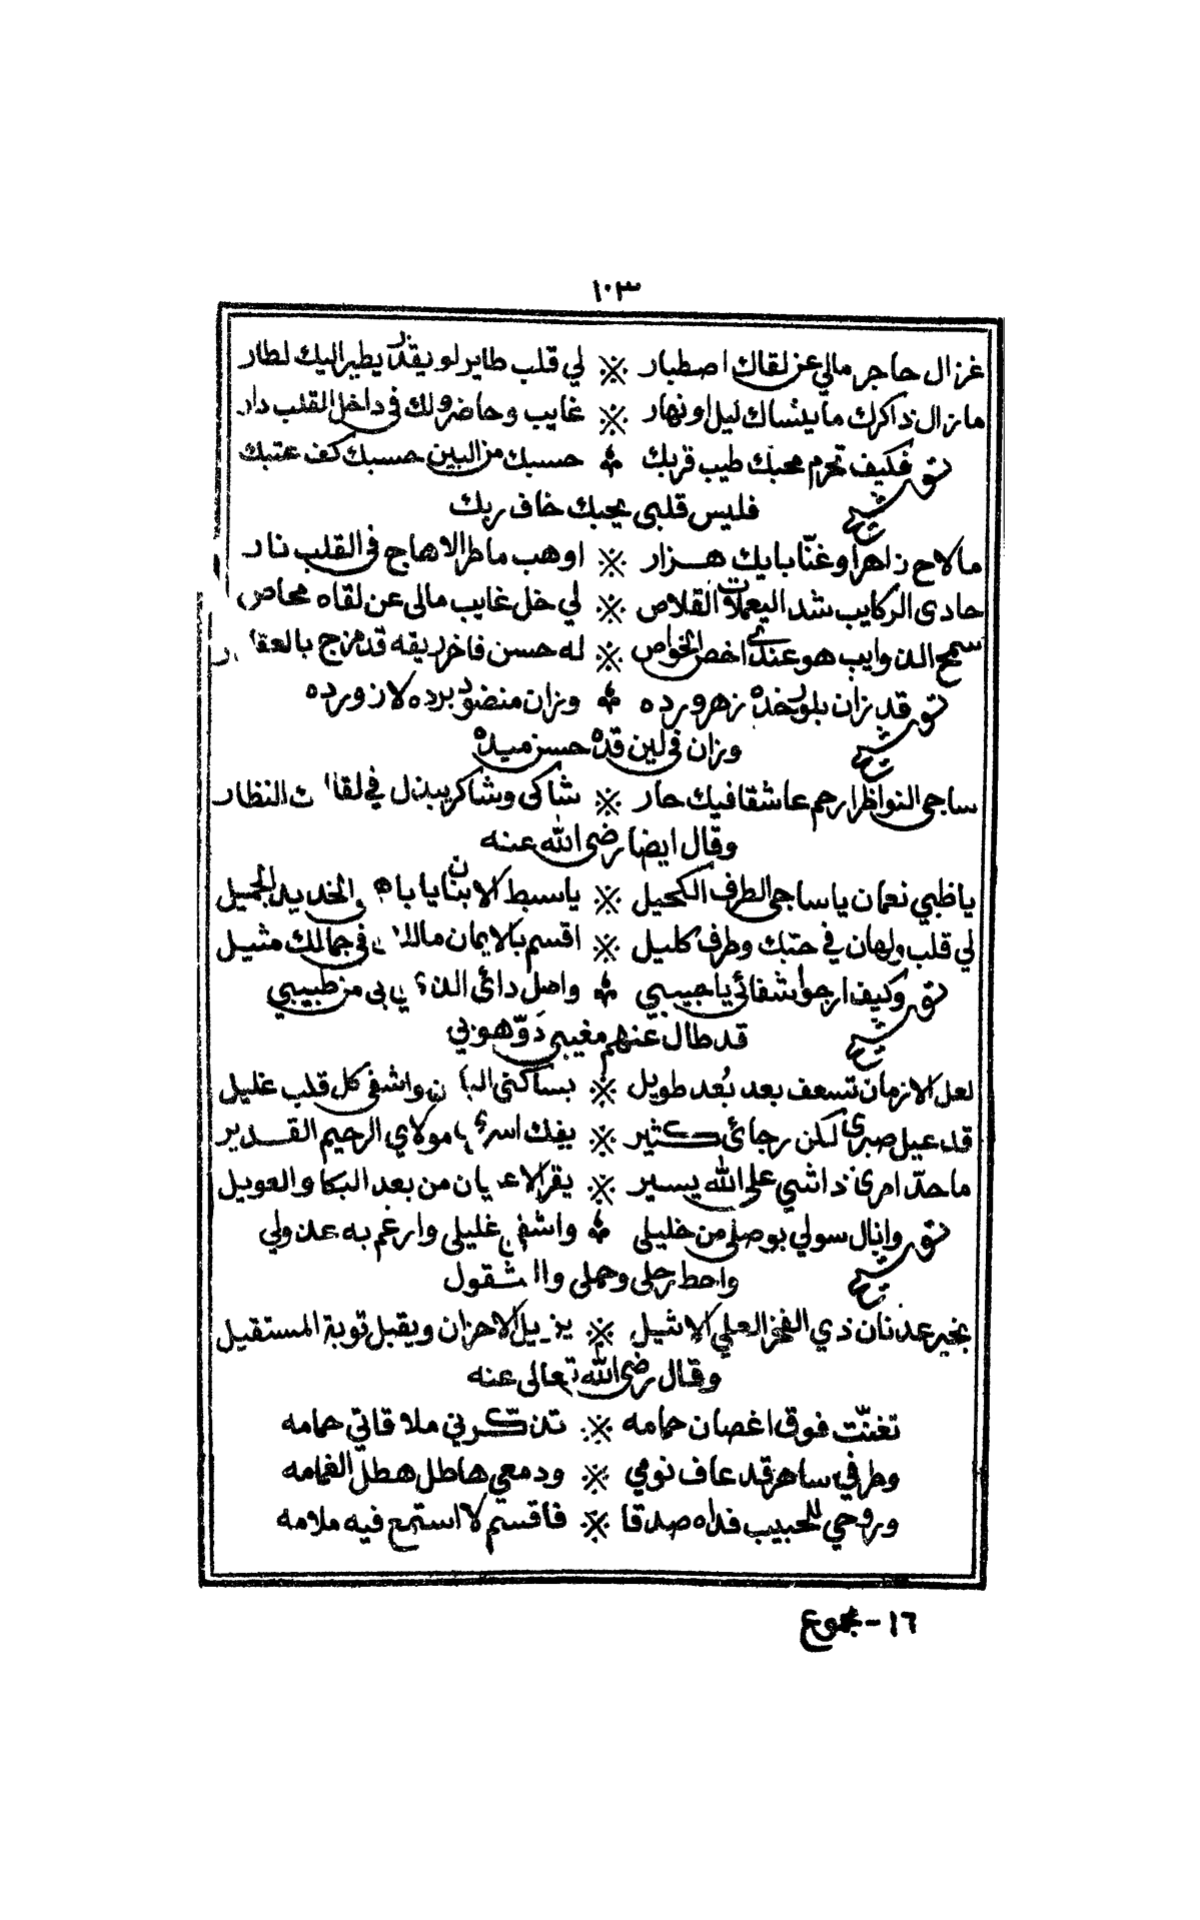 ١٠٣
غزال حاجر مالي عن لقاك اصطبار ※ لي قلب طاير لو يقدر يطير اليك لطار
مازال ذاكرك ما ينساك ليل او نهار ※ غايب وحاضر ولك في داخل القلب دار
توشيح فكيف تحرم محبك طيب قربك ※ حسبك من البين حسبك كف عتبك
فليس قلبى يحبك خاف ربك
مالاح زاهر او غنا بايك هزار ※ اوهب ماطر الاهاج في القلب نار
حادى الركايب شد اليعملات القلاص ※ لي خل غايب مالى عن لقاه محاص
سمح الذوايب هو عندي اخص الخواص ※ له حسن فاخر ريقه قد مزج بالعقار
توشيح قد زان بلور خده زهر ورده ※ وزان منضود برده لازورده
وزان في لين قده حسن ميده
ساجي النواظر ارحم عاشقا فيك حار ※ شاكى وشاكر يبذل في لقا النظار
وقال ايضا رضى الله عنه
ياظبي نعمان ياساجي الطرف الكحيل ※ ياسبط الابنان يا والخديد الجميل
لي قلب ولهان في حبك وطرف كليل ※ اقسم بالايمان مالك في جمالك مثيل
توشيح وكيف ارجوا شفائي ياحبيبي ※ واصل دائى الذي بى من طبيبي
قد طال عنهم مغيبى ذوهوبي
لعل الازمان تسعف بعد بُعد طويل ※ بساكنى البان واشفى كل قلب غليل
قد عيل صبرى لكن رجائى كثير ※ يفك اسرى يامولاي الرحيم القدير
ماحد امرى ذا شي على الله يسير ※ يقر الاعيان من بعد البكا والعويل
توشيح وانال سولي بوصلى من خليلى ※ واشفى غليلى وارغم به عذولي
واحط رحلى وحملى والشقول
بخير عدنان ذي الفخر العلي الاثيل ※ يزيل الاحزان ويقبل توبة المستقيل
وقال رضى الله تعالى عنه
تغنّت فوق اغصان حمامه ※ تذكّرني ملاقاتي حمامه
وطرفي ساهر قد عاف نومي ※ ودمعي هاطل هطل الغمامه
وروحي للحبيب فداه صدقا ※ فاقسم لا استمع فيه ملامه
١٦ - مجموع